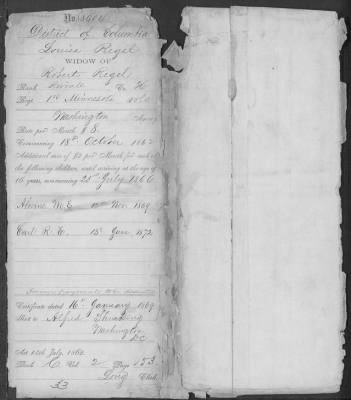 District of Columbia
Louisa Regel
WIDOW OF
Robert Regel
Rank Private Co. H
Regt. 1st Minnesota Vols
Washington Agency
Rate per Month $8.
Commencing 18th October 1867
Additional sum of $2 per Month for each of
the following children, until arriving at the age of
16 years, commencing 25th July 1866
Nov 1869
Carl R. E. 15 June 1872
Certificate dated 16th January 1869
Sent to Alfred
Washington
D.C.
Act 14th July, 1862.
Book C Vol. 2 Page 153
Clerk
33